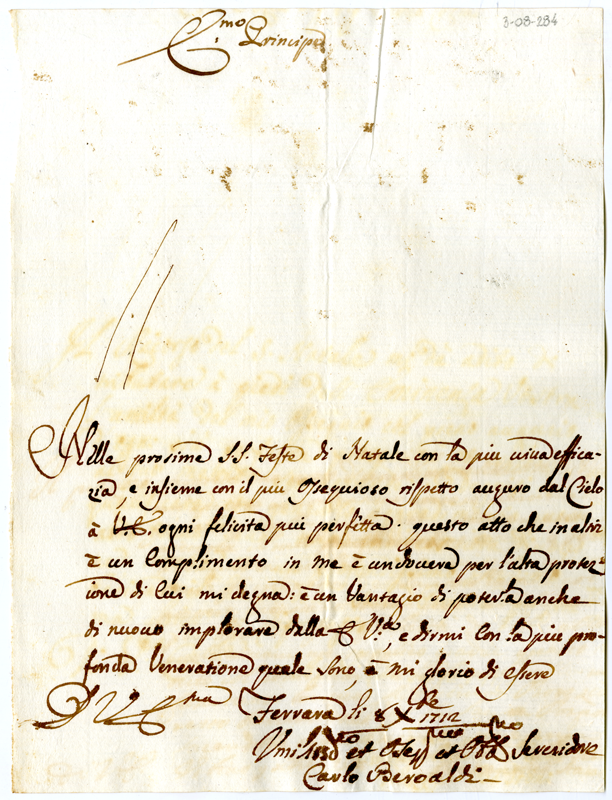 3-08-284
E.mo Principe
Nelle prosime SS. Feste di Natale con la piu viva effica-
zia, e insieme con il piu osequioso rispetto auguro dal Cielo
à V.E. ogni felicita piu perfetta. questo atto che in altri
è un Complimento in me è un dovere per l'alta protez-
ione di cui mi degna: è un Vantagio di poterla anche
di nuovo implorare dalla E V.ra, e dirmi con la piu pro-
fonda Veneratione quale sono, e mi glorio di essere
D V E
Ferrara li 8 Xbre 1712
Umiliss.o et Oseq.mo et Servidore
Carlo Beroaldi